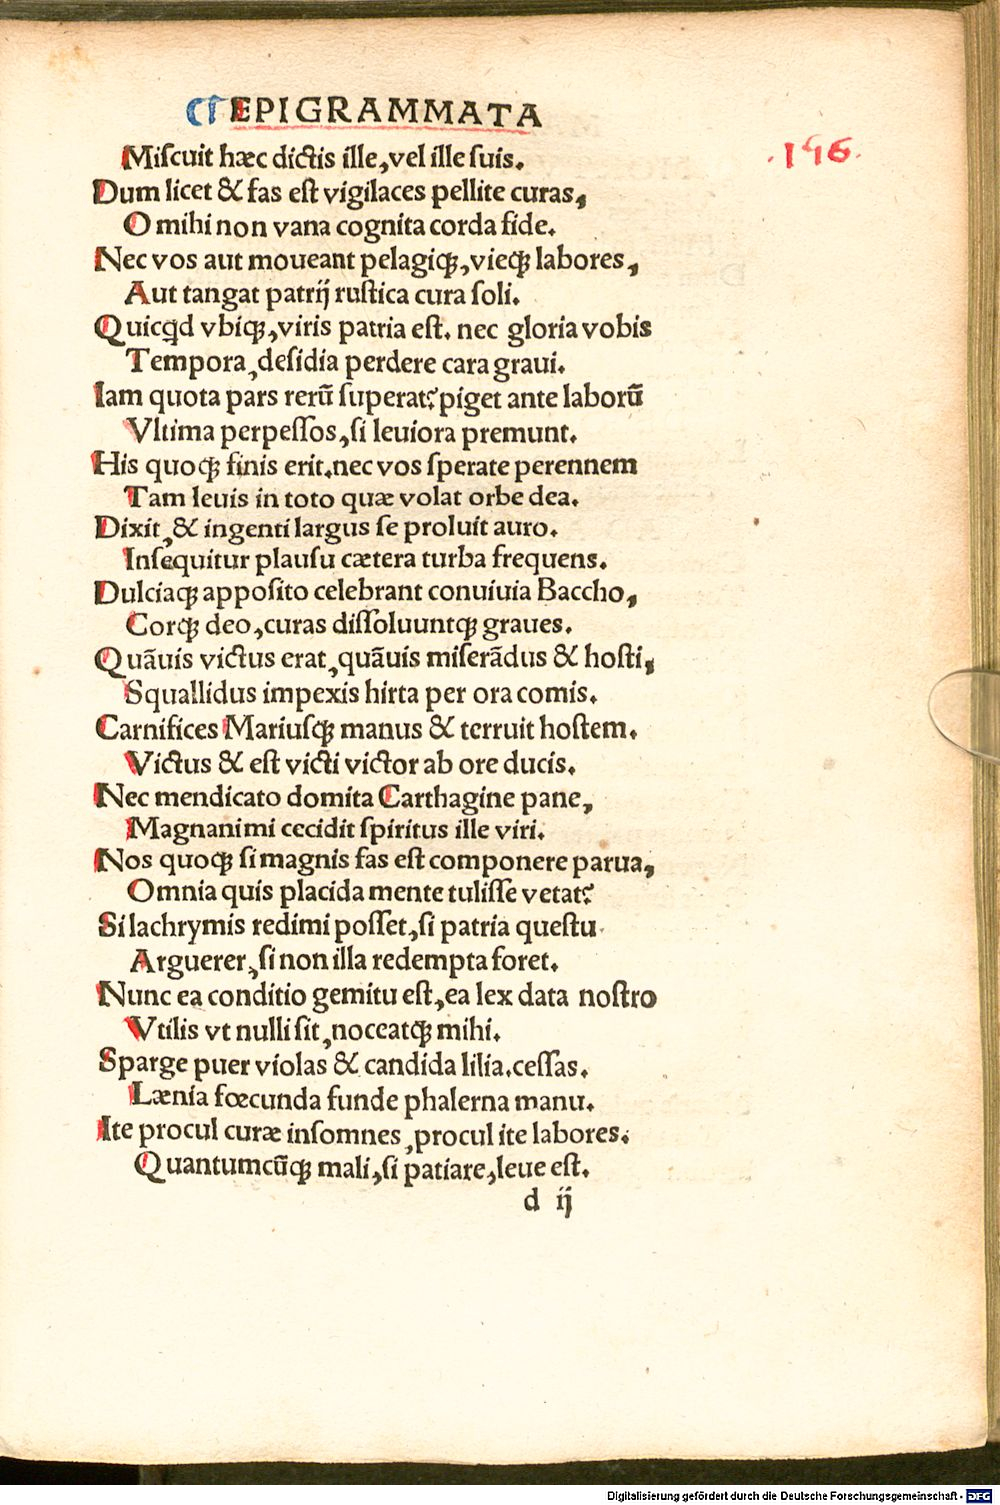 EPIGRAMMATA
Miſcuit hæc dictis ille, vel ille ſuis.
.196.
Dum licet & fas eſt vigilaces pellite curas,
O mihi non vana cognita corda fide.
Nec vos aut moueant pelagiqꝫ, vieqꝫ labores,
Aut tangat patrij ruſtica cura ſoli.
Quicqd vbiqꝫ, viris patria eſt. nec gloria vobis
Tempora, deſidia perdere cara graui.
Iam quota pars rerū ſuperat? piget ante laborū
Vltima perpeſſos, ſi leuiora premunt.
His quoqꝫ finis erit. nec vos ſperate perennem
Tam leuis in toto quæ volat orbe dea.
Dixit, & ingenti largus ſe proluit auro.
Inſequitur plauſu cætera turba frequens.
Dulciaqꝫ appoſito celebrant conuiuia Baccho,
Corqꝫ deo, curas diſſoluuntqꝫ graues.
Quāuis victus erat, quāuis miſerādus & hoſti,
Squallidus impexis hirta per ora comis.
Carnifices Mariuſqꝫ manus & terruit hoſtem.
Victus & eſt victi victor ab ore ducis.
Nec mendicato domita Carthagine pane,
Magnanimi cecidit ſpiritus ille viri.
Nos quoqꝫ ſi magnis fas eſt componere parua,
Omnia quis placida mente tuliſſe vetat?
Si lachrymis redimi poſſet, ſi patria queſtu.
Arguerer, ſi non illa redempta foret.
Nunc ea conditio gemitu eſt, ea lex data noſtro
Vtilis vt nulli ſit, noceatqꝫ mihi.
Sparge puer violas & candida lilia. ceſſas.
Lænia fœcunda funde phalerna manu.
Ite procul curæ inſomnes, procul ite labores.
Quantumcūqꝫ mali, ſi patiare, leue eſt.
d ij
Digitalisierung gefördert durch die Deutsche Forschungsgemeinschaft - DFG